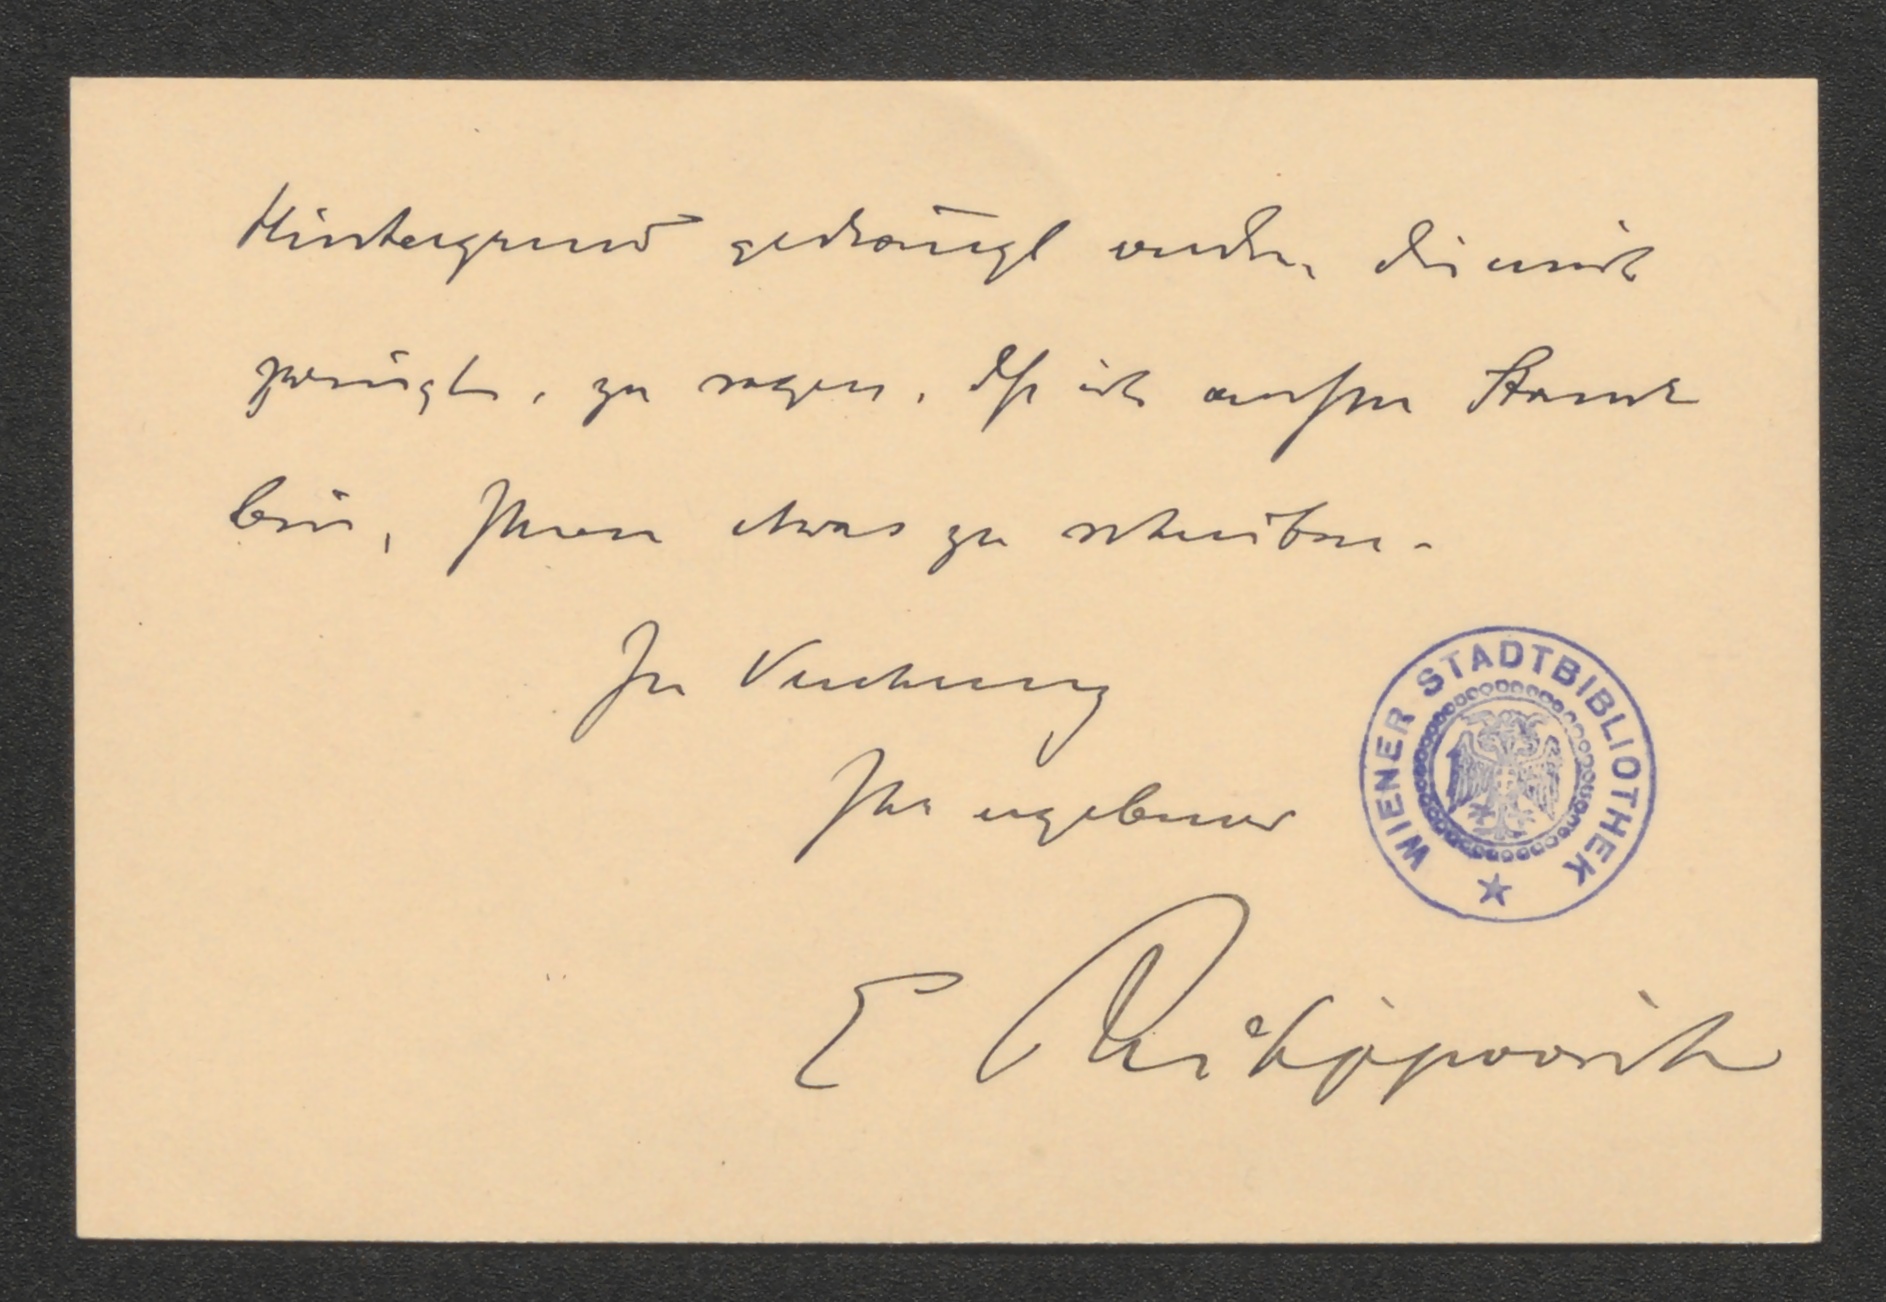 Hintergrund gedrängt werden. Die mich
zwingt, zu sagen, dß ich außer Stande
bin, Ihnen etwas zu schreiben.
In Verehrung
Ihr ergebener
E Philippovich
WIENER STADTBIBLIOTHEK